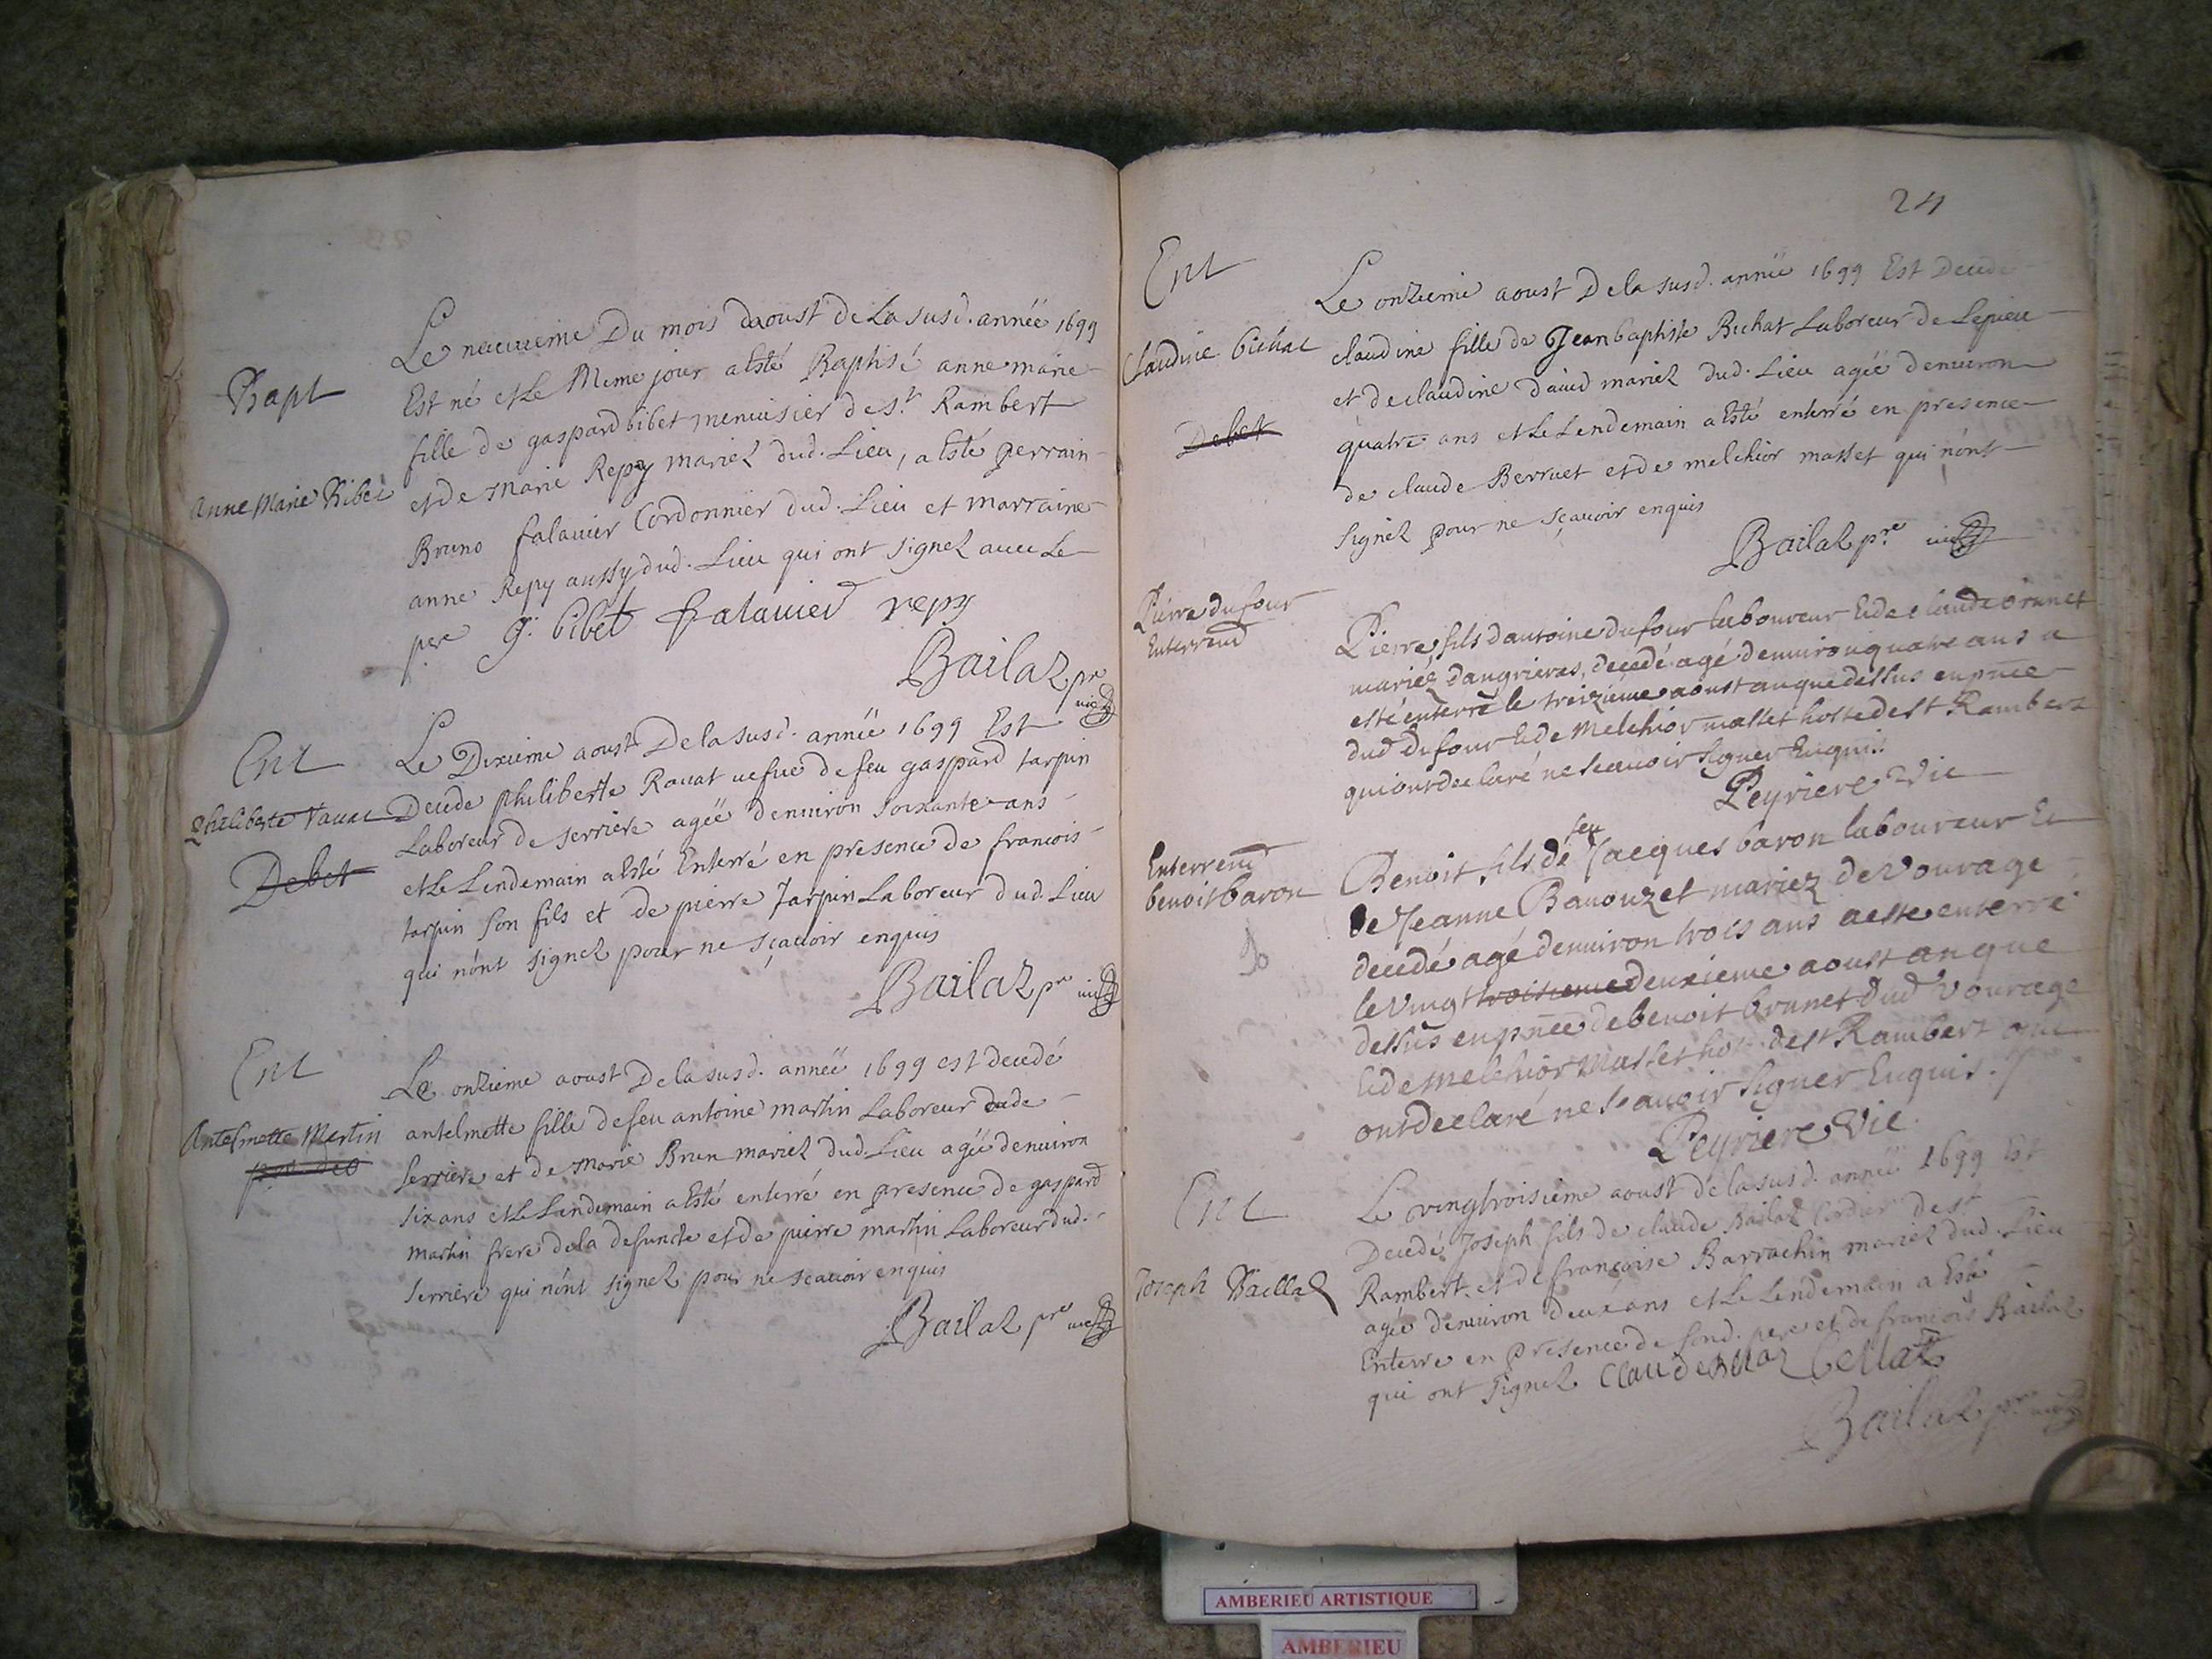 Bapt
Anne Marie Bibet
Le neuvieme Du mois daoust de La susd. année 1699
Est né et Le Meme jour a Esté Baptisé anne marie
fille de gaspard bibet menuisier de St Rambert
et de Marie Repy mariez dud. Lieu, a Esté perrain
Bruno falavier Cordonnier dud. Lieu et marraine
anne Repy aussy dud. Lieu qui ont signez avec Le
pere g. bibet falavier repy
Bailaz pre vic
Ent
philiberte ravat
Debet
Le Dixieme aoust De la susd. année 1699 Est
Decede philiberte Ravat vefve de feu gaspard tarpin
Laboreur de serriere agée denviron soixante ans
et Le Lendemain a Esté Enterré en presence de francois
tarpin son fils et de pierre Tarpin Laboreur dud. Lieu
qui n'ont signez pour ne sçavoir enquis
Bailaz pre vic
Ent
Antelmette Martin
pro deo
Le onzieme aoust De la susd. année 1699 est decedé
antelmette fille de feu antoine martin Laboreur de
serriere et de Marie Brun mariez dud. Lieu agée denviron
six ans et Le Lendemain a Esté enterré en presence de gaspard
martin frere de la defuncte et de pierre martin Laboreur dud.
serriere qui n'ont signez pour ne scavoir enquis
Bailaz pre vic
24
Ent
Claudine bichat
Debet
Le onzieme aoust De la susd. année 1699 Est Decede
claudine fille de Jean baptiste Bichat Laboreur de Lepieu
et de claudine david mariez dud. Lieu agée denviron
quatre ans et Le Lendemain a Esté enterré en presence
de claude Berruet et de melchior masset qui n'ont
signez pour ne sçavoir enquis
Bailaz pre vic
Pierre dufour
Enterremt
Pierre fils dantoine dufour laboureur Et de claude brunet
mariez daugrieres, decedé agé denviron quatre ans a
esté enterré le treizieme aoust an que dessus en pnce
dud dufour Et de Melchior masset hoste de st Rambert
qui ont declaré ne scavoir signer Enquis
Peyriere Vic
Enterremt
benoit baron
Benoit fils de feu Jacques baron laboureur Et
de Jeanne Banouzet mariez de Vourage
decedé agé denviron trois ans a esté enterré
le Vingt troisieme deuxieme aoust an que
dessus en pnce de benoit brunet dud Vourage
Et de Melchior Masset de st Rambert qui
ont declaré ne scavoir signer Enquis
Peyriere Vic
Ent
Joseph Baillaz
Le vingtroisieme aoust de la susd. année 1699 Est
Decedé Joseph fils de claude Bailaz Cordier de st
Rambert et de francoise Barrachin mariez dud. Lieu
agée denviron deux ans et Le Lendemain a Esté
Enterre en presence de sond. pere et de francois Bailaz
qui ont signez Claude
Bailaz pre vic
AMBERIEU ARTISTIQUE
AMBERIEU